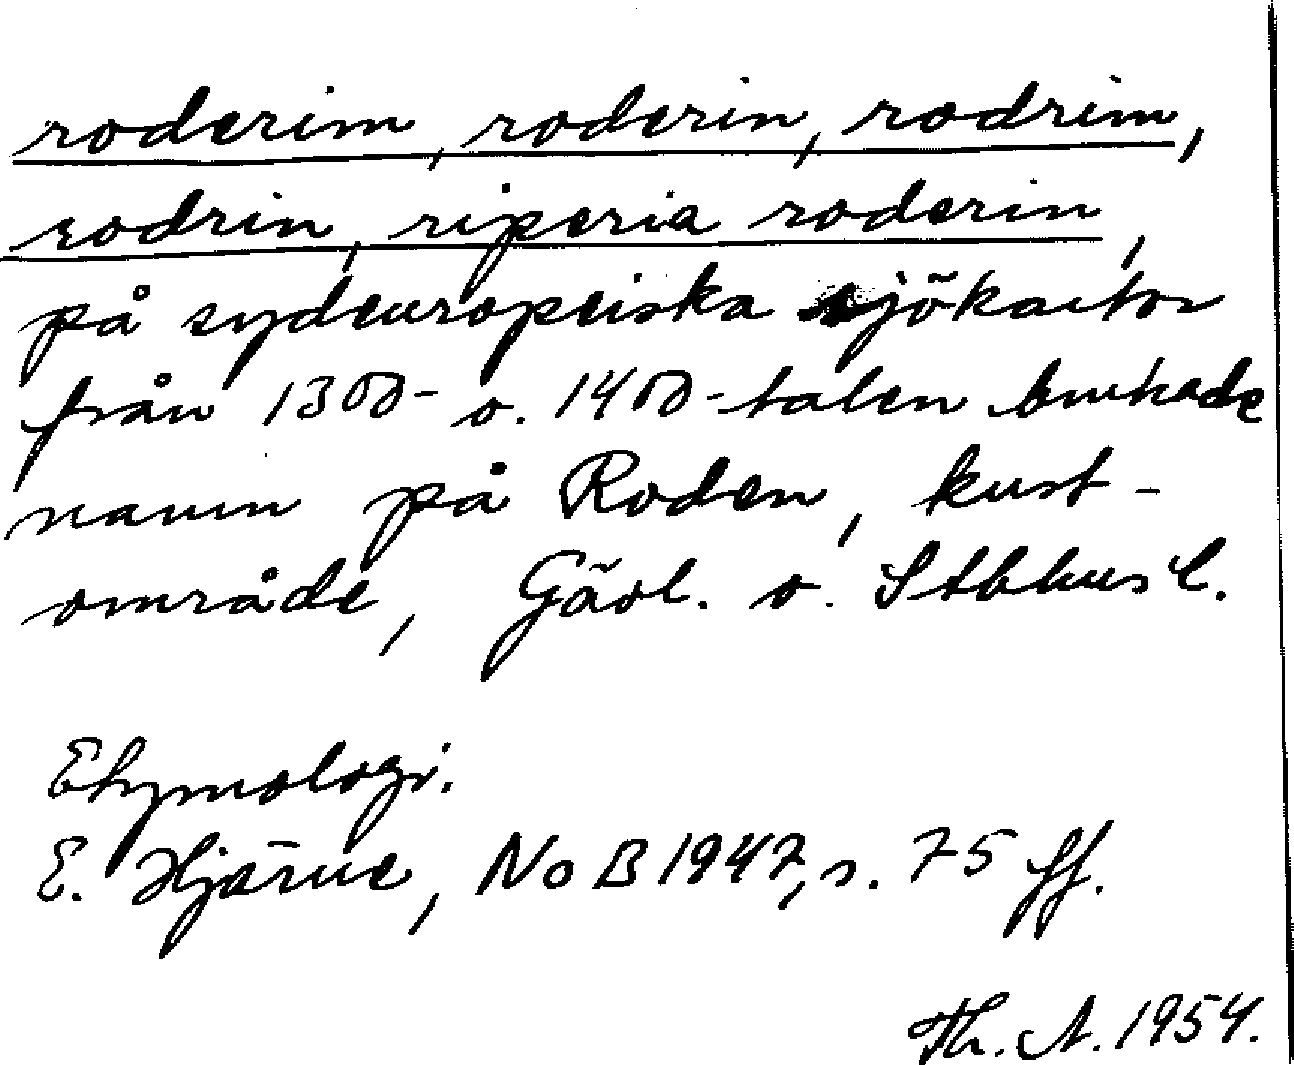 roderim, roderin, rodrim,
rodrin, riperia roderin,
på sydeuropeiska sjökartor
från 1300- o. 1400-talen brukade
namn på Roden, kust-
område, Gävl. o. Stbhus l.
Etymologi.
E. Hjärne, NoB 1947, s. 75 ff.
Th. A. 1954.